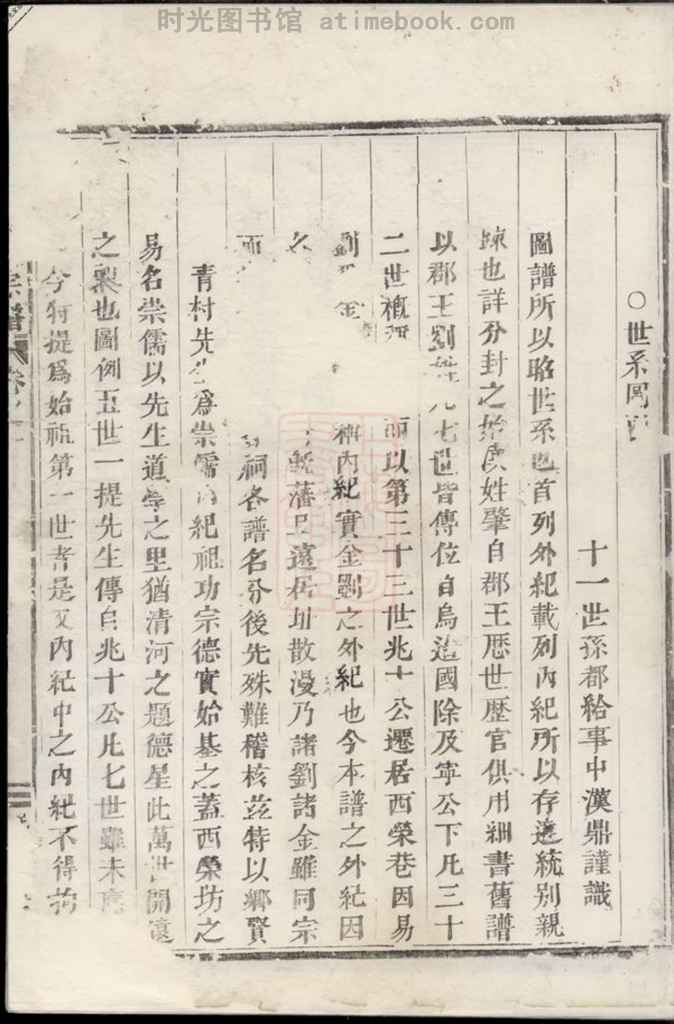 时光图书馆 atimebook.com
○世系圖
十一世孫都給事中漢鼎謹識
圖譜所以昭世系也首列外紀載列內紀所以存遠統別親
疎也詳分封之始原姓肇自郡王歷世歷官俱用細書舊譜
以郡王劉 凡七世皆傳位自烏 國除及寧公下凡三十
二世概 而以第三十三世兆十公遷居西榮巷因易
劉 金 稱內紀實金劉之外紀也今本譜之外紀因
藩 遠 址散漫乃諸劉諸金雖同宗
祠各譜名分後先殊難稽核茲特以鄉賢
青村先生爲崇儒內紀祖功宗德實始基之蓋西榮坊之
易名崇儒以先生道學之里猶清河之題德星此萬世開
之 也圖例五世一提先生傳自兆十公凡七世雖未
今特提爲始祖第一世者是又內紀中之內紀不得拘
宗譜 卷之